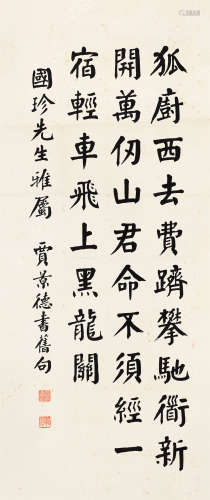 狐廚西去費躋攀馳衕新
開萬仞山君命不須經一
宿輕車飛上黑龍關
國珍先生雅屬
賈景德書舊句